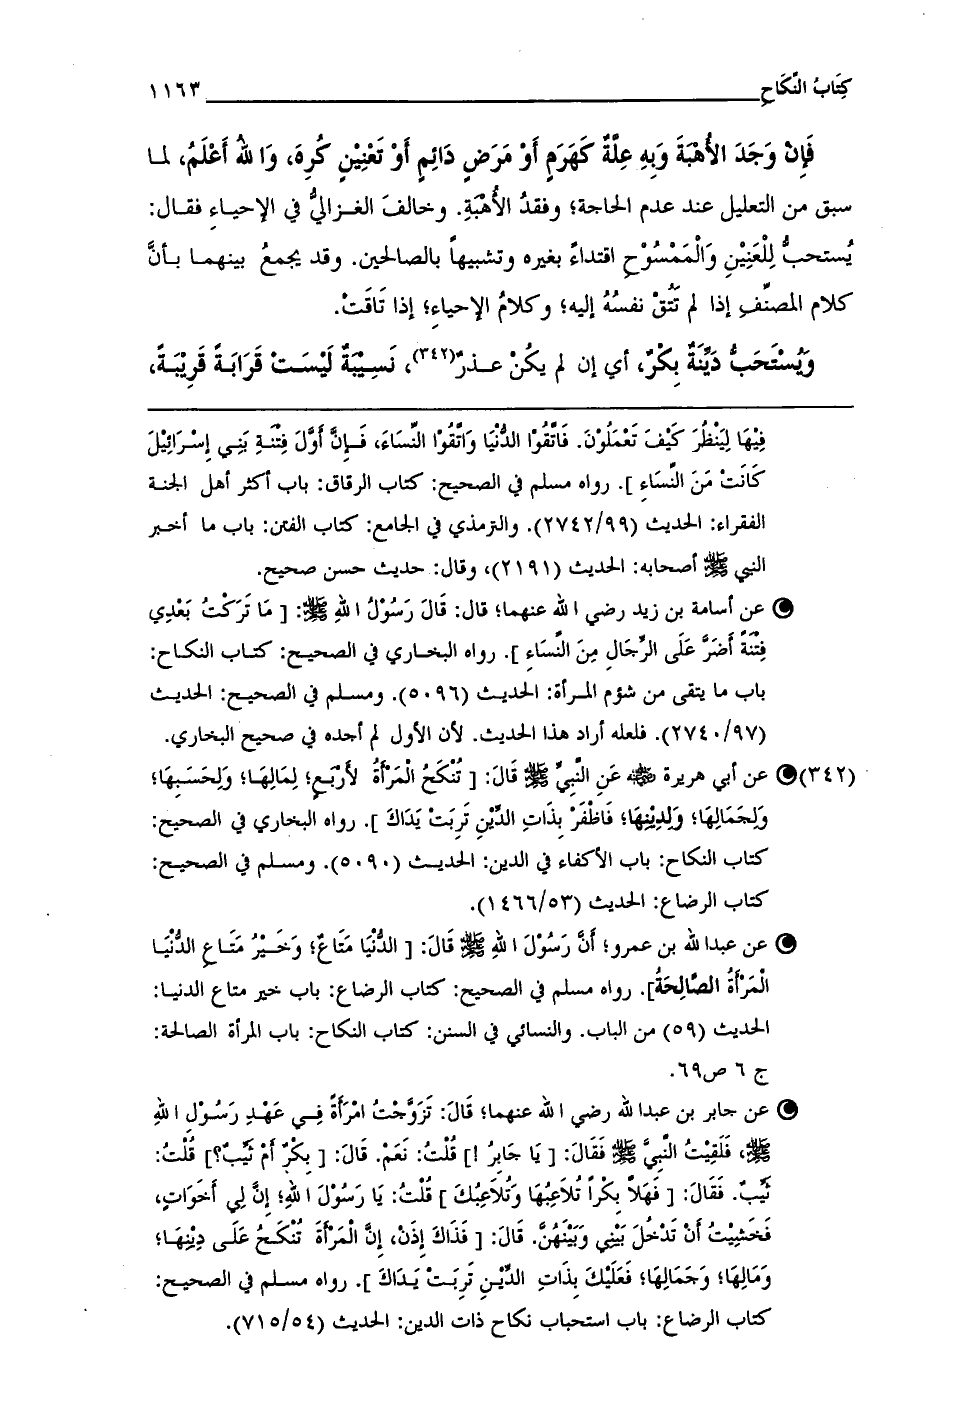 كِتَابُ النِّكَاحِ ١١٦٣
فَإِنْ وَجَدَ الأُهْبَةَ وَبِهِ عِلَّةٌ كَهَرَمٍ أَوْ مَرَضٍ دَائِمٍ أَوْ تَعْنِيْنٍ كُرِهَ، وَا للهُ أَعْلَمُ، لما
سبق من التعليل عند عدم الحاجة؛ وفقدُ الأُهْبَةِ. وخالفَ الغزاليُّ في الإحياءِ فقال:
يُستحبُّ لِلْعَنِيْنِ وَالْمَمْسُوْحِ اقتداءً بغيره وتشبيهاً بالصالحين. وقد يجمعُ بينهما بأنَّ
كلام المصنِّفِ إذا لم تَتُقْ نفسُهُ إليه؛ وكلامُ الإحياءِ؛ إذا تَاقَتْ.
وَيُسْتَحَبُّ دَيِّنَةٌ بِكْرٌ، أي إن لم يكنْ عذرٌ(٣٤٢)، نَسِيْبَةٌ لَيْسَتْ قَرَابَةً قَرِيْبَةً،
فِيْهَا لِيَنْظُرَ كَيْفَ تَعْمَلُوْنَ. فَاتَّقُوْا الدُّنْيَا وَاتَّقُوْا النِّسَاءَ، فَإِنَّ أَوَّلَ فِتْنَةِ بَنِي إِسْرَائِيْلَ
كَانَتْ مَنَ النِّسَاءِ ]. رواه مسلم في الصحيح: كتاب الرقاق: باب أكثر أهل الجنة
الفقراء: الحديث (٢٧٤٢/٩٩). والترمذي في الجامع: كتاب الفتن: باب ما أخبر
النبي ﷺ أصحابه: الحديث (٢١٩١)، وقال: حديث حسن صحيح.
عن أسامة بن زيد رضي ا لله عنهما؛ قال: قَالَ رَسُوْلُ ا للهِ ﷺ: [ مَا تَرَكْتُ بَعْدِي
فِتْنَةً أَضَرَّ عَلَى الرِّجَالِ مِنَ النِّسَاءِ ]. رواه البخاري في الصحيح: كتاب النكاح:
باب ما يتقى من شؤم المرأة: الحديث (٥٠٩٦). ومسلم في الصحيح: الحديث
(٢٧٤٠/٩٧). فلعله أراد هذا الحديث. لأن الأول لم أجده في صحيح البخاري.
(٣٤٢) عن أبي هريرة ﷺ عَنِ النَّبِيِّ ﷺ قَالَ: [ تُنْكَحُ الْمَرْأَةُ لأَرْبَعٍ؛ لِمَالِهَا؛ وَلِحَسَبِهَا؛
وَلِجَمَالِهَا؛ وَلِدِيْنِهَا؛ فَاظْفَرْ بِذَاتِ الدِّيْنِ تَرِبَتْ يَدَاكَ ]. رواه البخاري في الصحيح:
كتاب النكاح: باب الأكفاء في الدين: الحديث (٥٠٩٠). ومسلم في الصحيح:
كتاب الرضاع: الحديث (١٤٦٦/٥٣).
عن عبدا لله بن عمرو؛ أَنَّ رَسُوْلَ ا للهِ ﷺ قَالَ: [ الدُّنْيَا مَتَاعٌ؛ وَخَيْرُ مَتَاعِ الدُّنْيَا
الْمَرْأَةُ الصَّالِحَةُ]. رواه مسلم في الصحيح: كتاب الرضاع: باب خير متاع الدنيا:
الحديث (٥٩) من الباب. والنسائي في السنن: كتاب النكاح: باب المرأة الصالحة:
ج ٦ ص٦٩.
عن جابر بن عبدا لله رضي ا لله عنهما؛ قَالَ: تَزَوَّجْتُ امْرَأَةً فِي عَهْدِ رَسُوْلِ ا للهِ
ﷺ، فَلَقِيْتُ النَّبِيَّ ﷺ فَقَالَ: [ يَا جَابِرُ !] قُلْتُ: نَعَمْ. قَالَ: [ بِكْرٌ أَمْ ثَيِّبٌ؟] قُلْتُ:
ثَيِّبٌ. فَقَالَ: [ فَهَلاَّ بِكْراً تُلاَعِبُهَا وَتُلاَعِبُكَ ] قُلْتُ: يَا رَسُوْلَ ا للهِ؛ إِنَّ لِي أَخَوَاتٍ،
فَخَشِيْتُ أَنْ تَدْخُلَ بَيْنِي وَبَيْنَهُنَّ. قَالَ: [ فَذَاكَ إِذَنْ، إِنَّ الْمَرْأَةَ تُنْكَحُ عَلَى دِيْنِهَا؛
وَمَالِهَا؛ وَجَمَالِهَا؛ فَعَلَيْكَ بِذَاتِ الدِّيْنِ تَرِبَتْ يَدَاكَ ]. رواه مسلم في الصحيح:
كتاب الرضاع: باب استحباب نكاح ذات الدين: الحديث (٧١٥/٥٤).